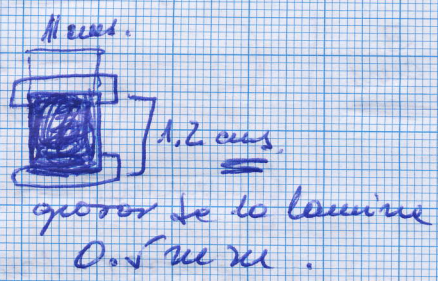 11 mm.
1,2 cms
grosor de la lamina
0.5 mm.